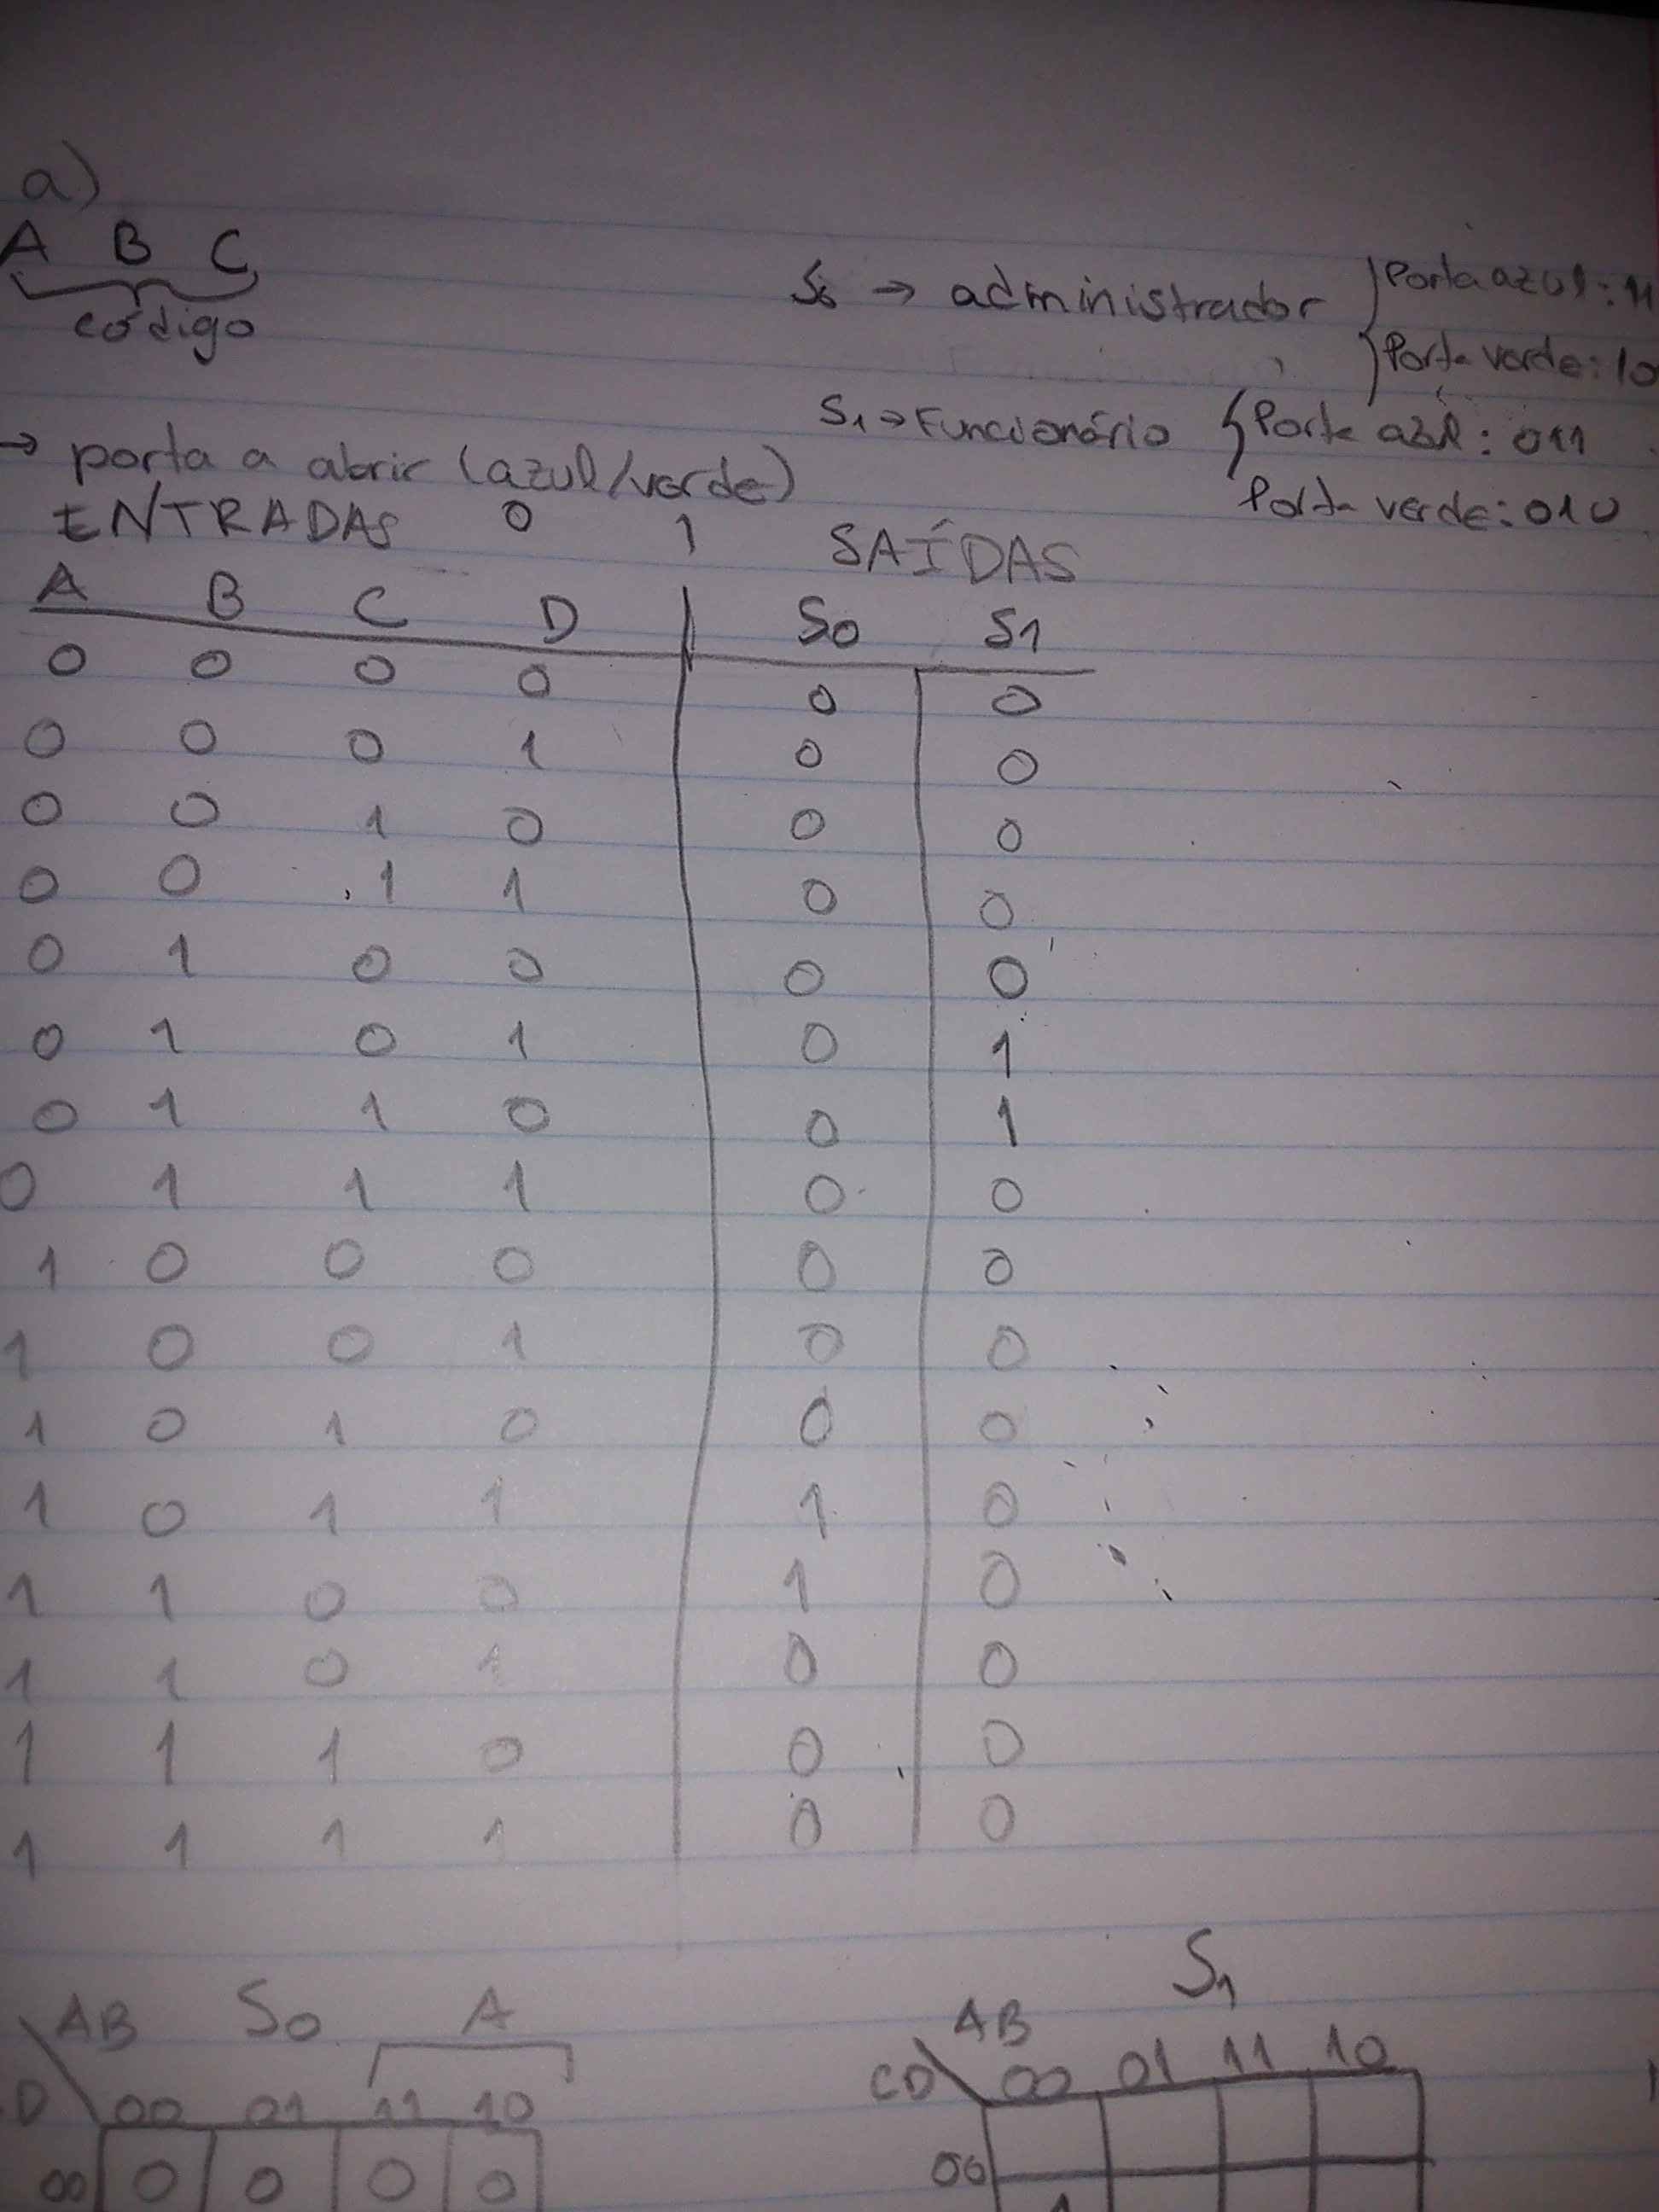 a)
A B C
código
S0 → administrador
Porta azul: 11
Porta verde: 10
S1 → Funcionário
Porta azul: 011
Porta verde: 010
→ porta a abrir (azul/verde)
0 1
ENTRADAS SAÍDAS
A B C D S0 S1
0 0 0 0 0 0
0 0 0 1 0 0
0 0 1 0 0 0
0 0 1 1 0 0
0 1 0 0 0 0
0 1 0 1 0 1
0 1 1 0 0 1
0 1 1 1 0 0
1 0 0 0 0 0
1 0 0 1 0 0
1 0 1 0 0 0
1 0 1 1 1 0
1 1 0 0 1 0
1 1 0 1 0 0
1 1 1 0 0 0
1 1 1 1 0 0
AB S0 A
D 00 01 11 10
00 0 0 0 0
S1
AB
CD 00 01 11 10
00